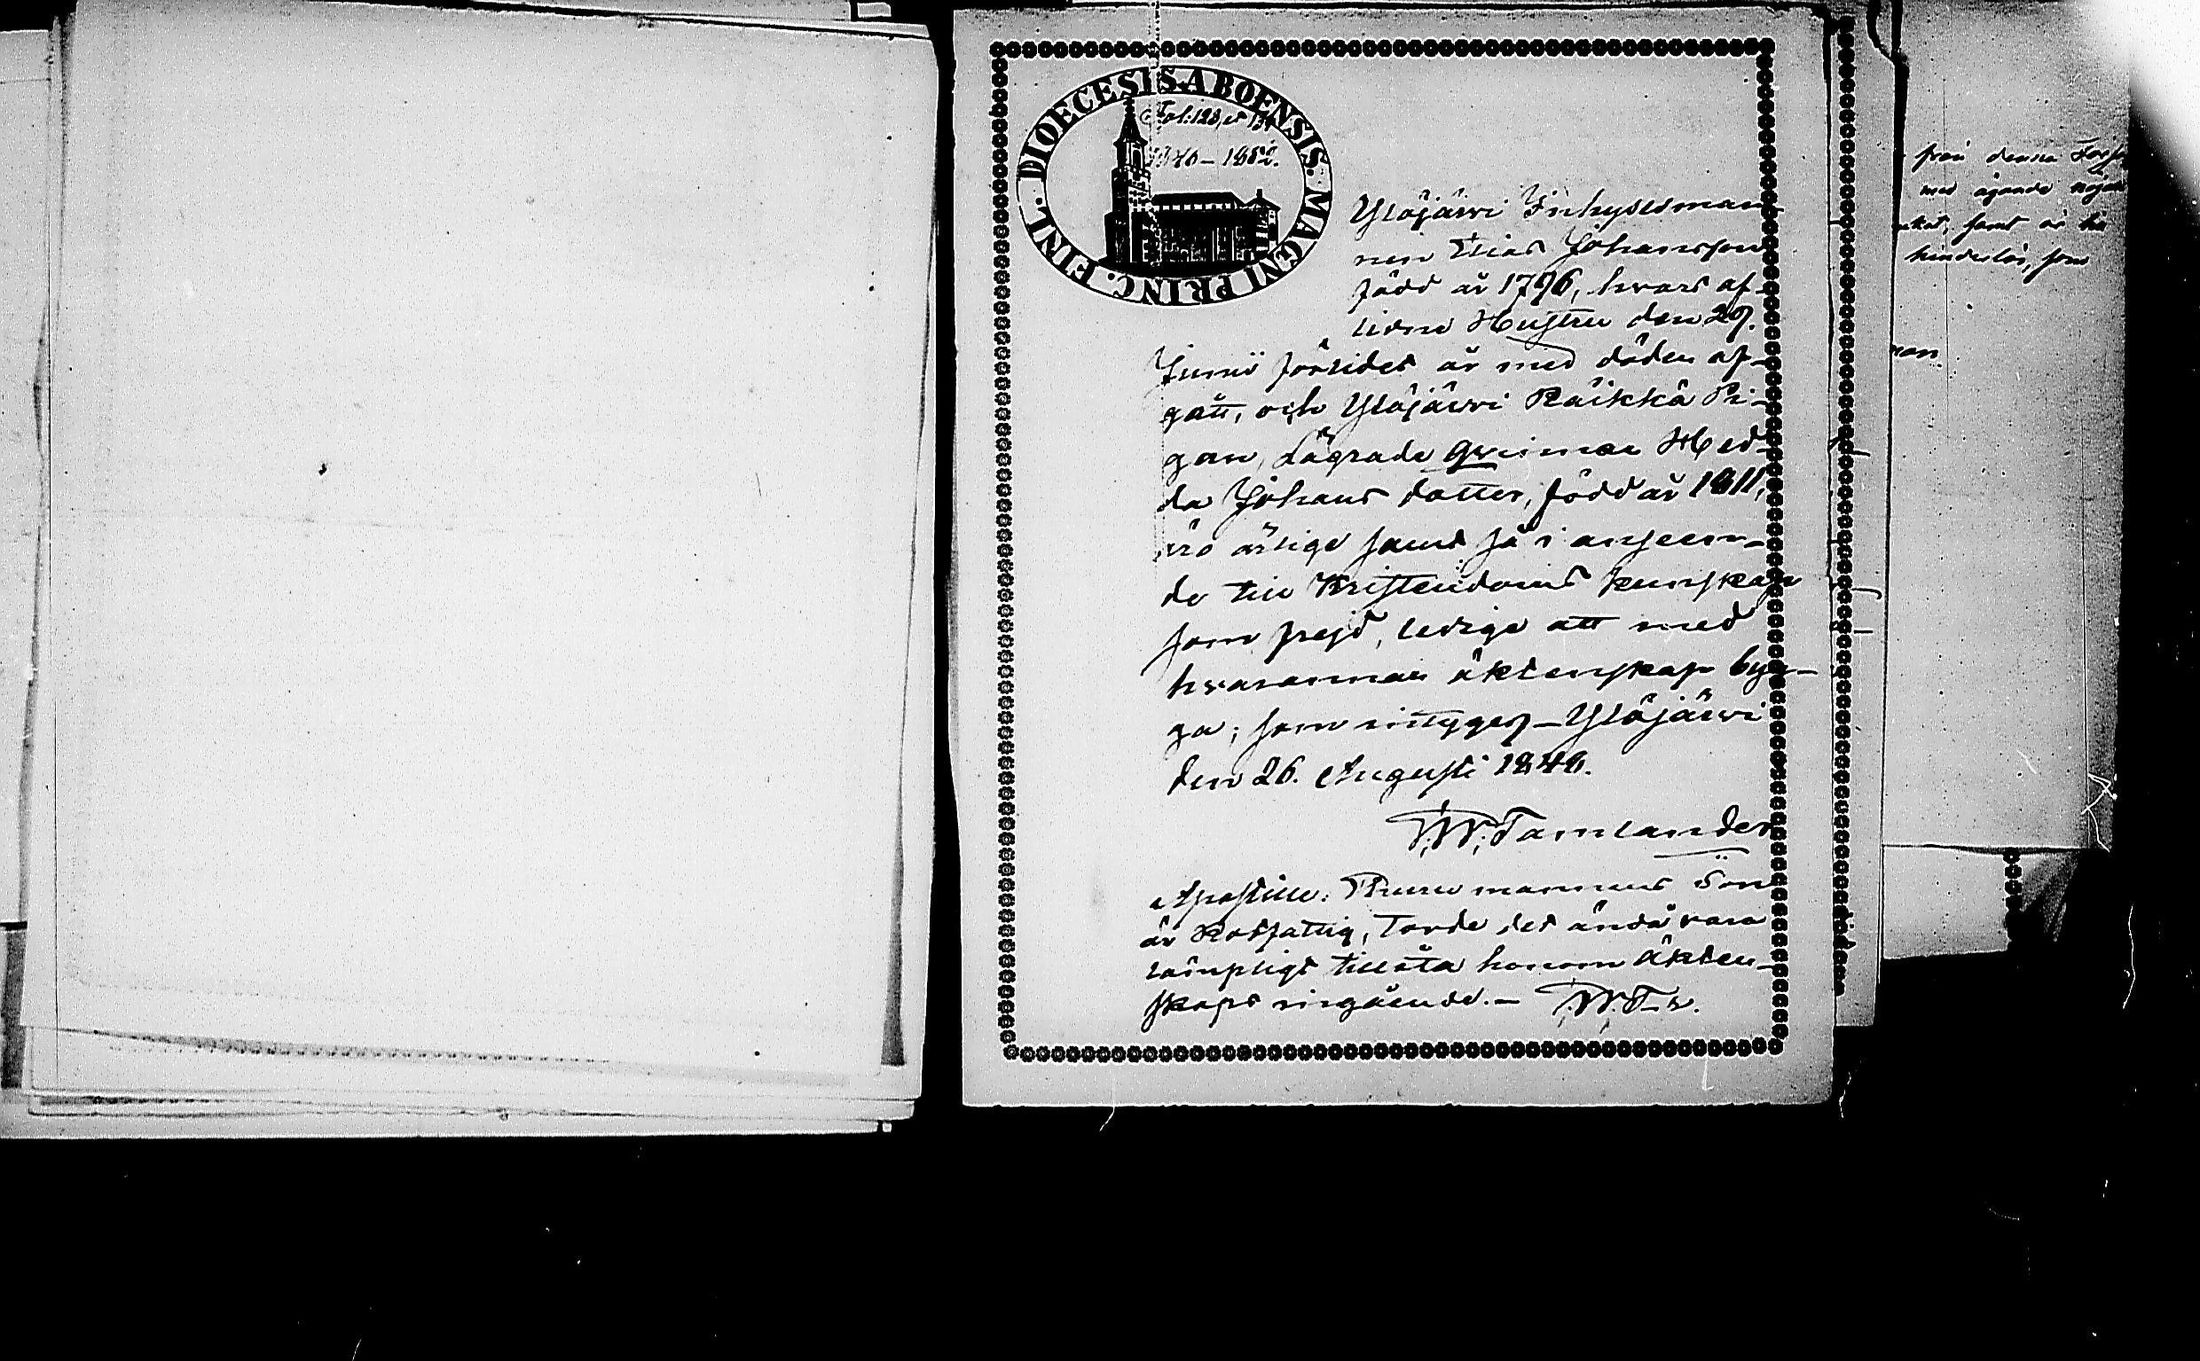 DIOECESIS ABOENSIS. MAGNI PRINC. FINL.
Fol: 128, et
1846 – 1852.
Ylöjärvi Inhysesman
nen Elias Johansson
född år 1796, hvars af-
lidne Hustru den 27.
Junii förlidet år med döden af-
gått, och Ylöjärvi Räikkä Pi-
gan, Lägrade qvinnan Hed-
da Johans dotter, född år 1811,
äro ärlige samt så i anseen-
de till Kristendoms kunskap
som frejd, ledige att med
hvarannan äktenskap byg-
ga; som intygas – Ylöjärvi
den 26. Augusti 1846.
F. W. Tamlander
Apostille: mannens Son
är Rotfattig, Torde det ändå vara
lämpligt tillåta honom äkten-
skaps ingående. – F. W. T–r.
från denna
med ägande
samt är
hinderlös, som